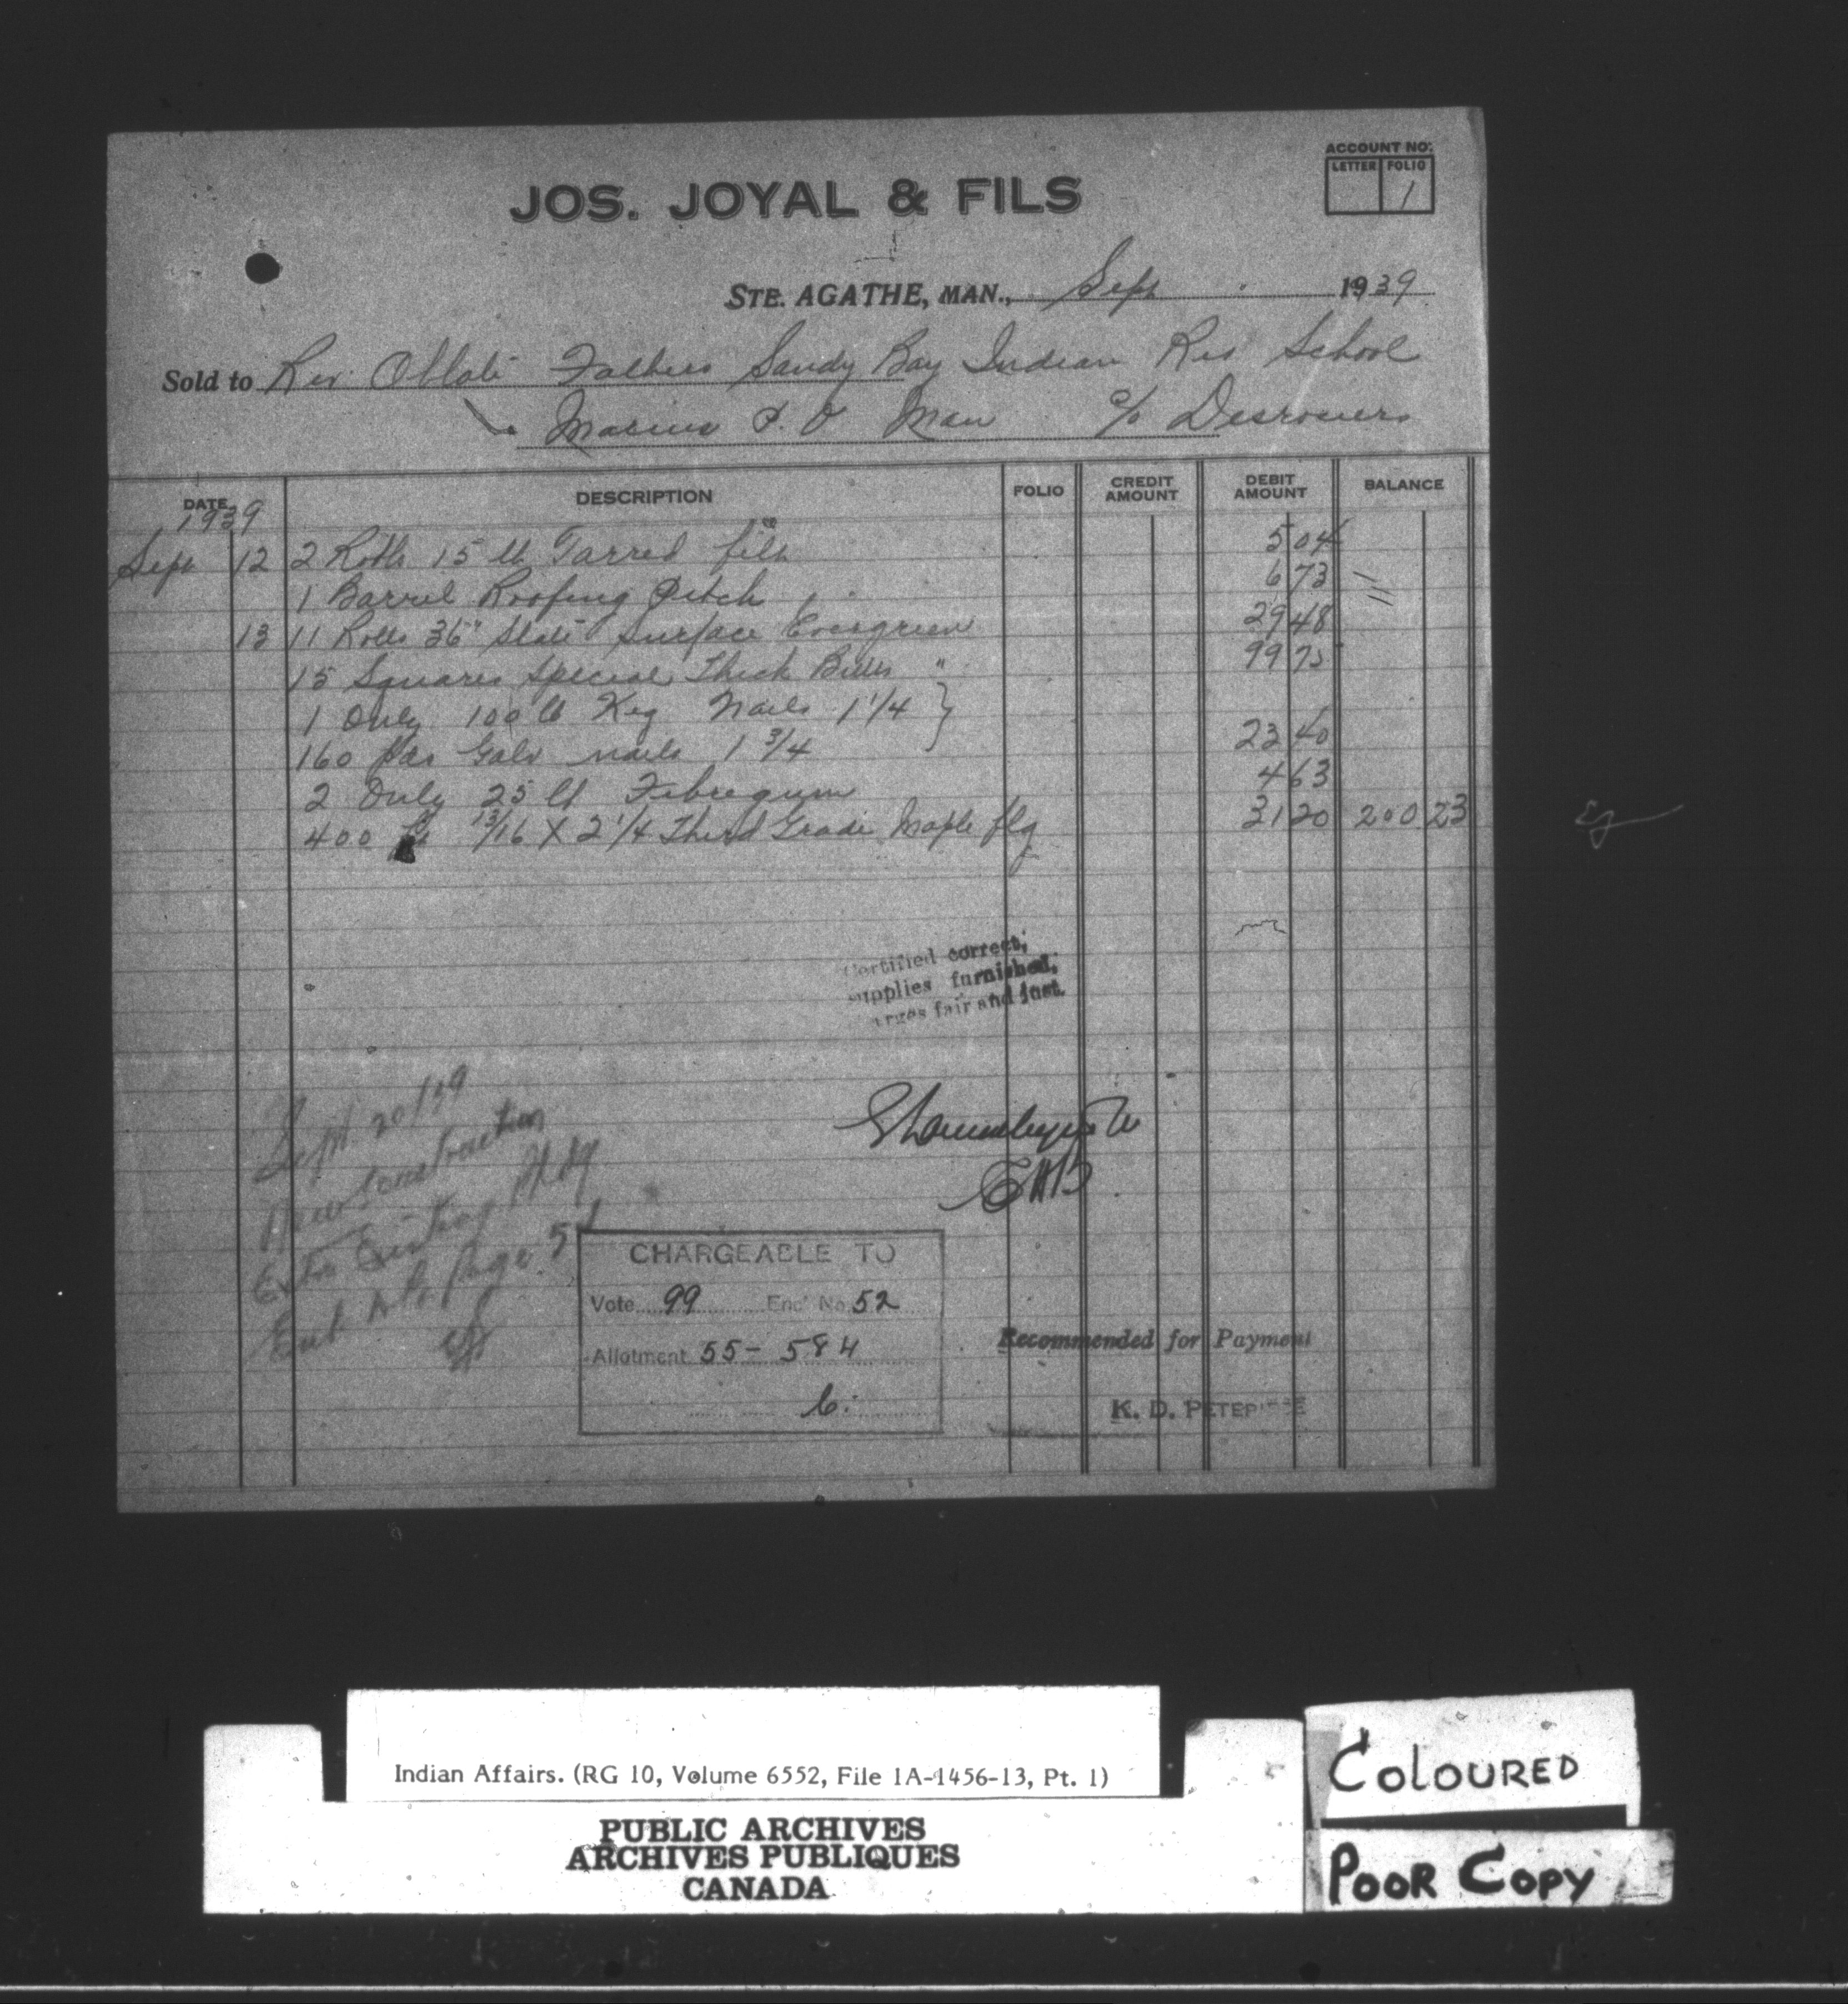 ACCOUNT NO.
LETTER FOLIO
1
JOS. JOYAL & FILS
STE. AGATHE, MAN., Sept 1939
Sold to Rev. Oblate Fathers Sandy Bay Indian Res School
Marius P.O Man c/o Desrosiers
DATE DESCRIPTION FOLIO CREDIT AMOUNT DEBIT AMOUNT BALANCE
1939
Sept 12 2 Rolls 15 lb Tarred felt 5 04
1 Barrel Roofing Pitch 6 73
13 11 Rolls 36" Slate Surface Evergreen 29 48
15 Squares Special Thick Butts " 99 75
1 Only 100 lb Keg Nails 1 1/4 }
160 lbs Galv nails 1 3/4 23 40
2 Only 25 lb Fibregum 4 63
400 ft 13/16 X 2 1/4 Third Grade Maple flg 31 20 200 23
Certified correct,
supplies furnished,
fair and just.
Sept. 20/39
New Construction
Existing Bldg
Page 5
EHB
CHARGEABLE TO
Vote 99 Enc' No. 52
Allotment 55 - 584
Recommended for Payment
K. D.
Indian Affairs. (RG 10, Volume 6552, File 1A-1456-13, Pt. 1)
PUBLIC ARCHIVES
ARCHIVES PUBLIQUES
CANADA
COLOURED
POOR COPY